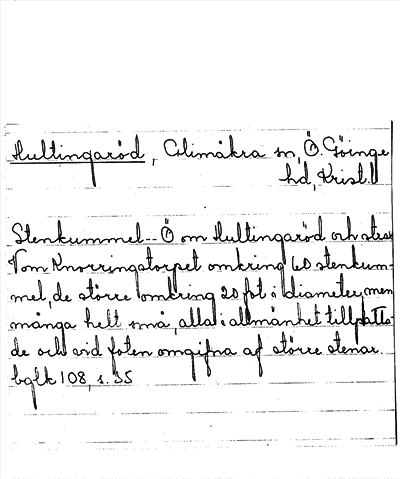 Hultingaröd, Glimåkra sn, Ö. Göinge
hd, Krist. ll
Stenkummel -- Ö om Hultingaröd och strax
V om Knorringatorpet omkring 60 stenkum-
mel, de större omkring 20 fot i diameter, men
många helt små, alla i allmänhet tillplatta-
de och vid foten omgifna af större stenar.
bglk 108, s. 35